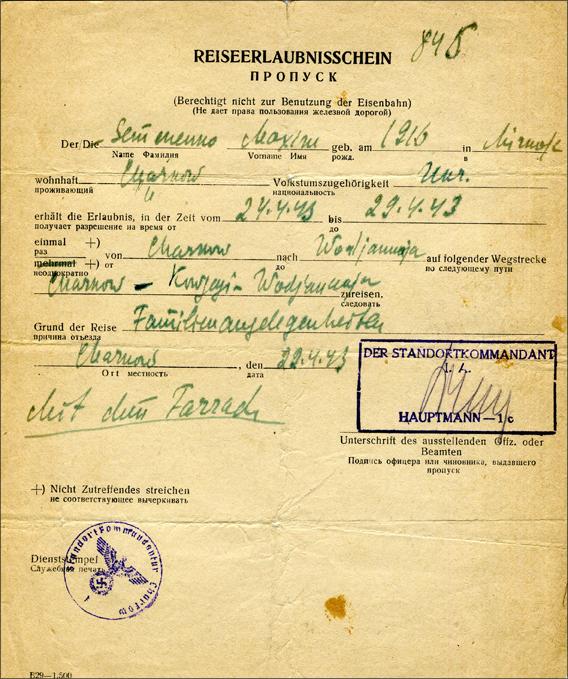 REISEERLAUBNISSCHEIN
ПРОПУСК
(Berechtigt nicht zur Benutzung der Eisenbahn)
(Не дает права пользования железной дорогой)
Der/Die Semmenno Maxim geb. am 1916 in
Name Фамилия Vorname Имя рожд. в
wohnhaft Charkow Volkstumszugehörigkeit Ukr.
проживающий национальность
erhält die Erlaubnis, in der Zeit vom 24.4.43 bis 29.4.43
получает разрешение на время от до
einmal +) von Charkow nach Wodjannaja auf folgender Wegstrecke
раз
mehrmal +) от до по следующему пути
неоднократно
Charkow - Wodjannaja zureisen,
следовать
Grund der Reise Familienangelegenheiten
причина отъезда
Charkow, den 22.4.43
Ort местность дата
Mit dem Farrad
DER STANDORTKOMMANDANT
I. A.
HAUPTMANN — 1c
Unterschrift des ausstellenden Offiz. oder
Beamten
Подпись офицера или чиновника, выдавшего
пропуск
+) Nicht Zutreffendes streichen
не соответствующее вычеркивать
Dienststempel
Служебная печать
Standortkommandantur Charkow
B29—1.500